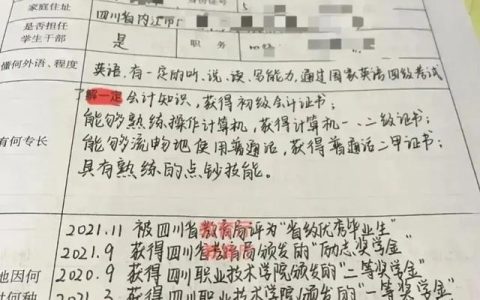 家庭住址
四川省内江市
是否担任
学生干部
是
职务
懂何外语、程度
英语,有一定的听、说、读、写能力,通过国家英语四级考试
了解一定会计知识,获得初级会计证书;
能够熟练操作计算机,获得计算机一、二级证书;
有何专长
能够流畅地使用普通话,获得普通话二甲证书;
具有熟练的点钞技能。
2021.11 被四川省教育局评为"省级优秀毕业生"
2021.9 获得四川省教育局颁发的"励志奖学金"
地因何
2020.9 获得四川职业技术学院颁发的"二等奖学金"
2021.3 获得四川职业技术学院颁发的"一等奖学金"